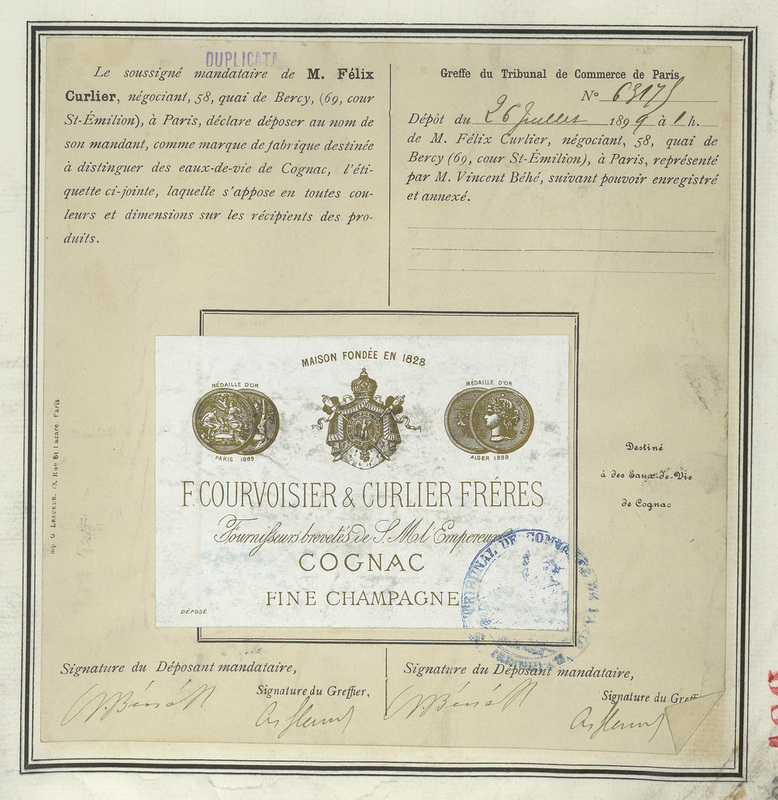 DUPLICATA
Le soussigné mandataire de M. Félix
Curlier, négociant, 58, quai de Bercy, (69, cour
St-Émilion), à Paris, déclare déposer au nom de
son mandant, comme marque de fabrique destinée
à distinguer des eaux-de-vie de Cognac, l'éti-
quette ci-jointe, laquelle s'appose en toutes cou-
leurs et dimensions sur les récipients des pro-
duits.
Greffe du Tribunal de Commerce de Paris
No 63175
Dépôt du 26 Juillet 1899 à 1 h.
de M. Félix Curlier, négociant, 58, quai de
Bercy (69, cour St-Émilion), à Paris, représenté
par M. Vincent Béhé, suivant pouvoir enregistré
et annexé.
MAISON FONDÉE EN 1828
MÉDAILLE D'OR
PARIS 1889
MÉDAILLE D'OR
ALGER 1889
F. COURVOISIER & CURLIER FRÉRES
Fournisseurs brevetés de S. M. l'Empereur
COGNAC
FINE CHAMPAGNE
DÉPOSÉ
TRIBUNAL DE COMMERCE DE LA
Destiné
à des Eaux-de-Vie
de Cognac
Paris
Signature du Déposant mandataire,
Signature du Greffier,
Signature du Déposant mandataire,
Signature du Greff